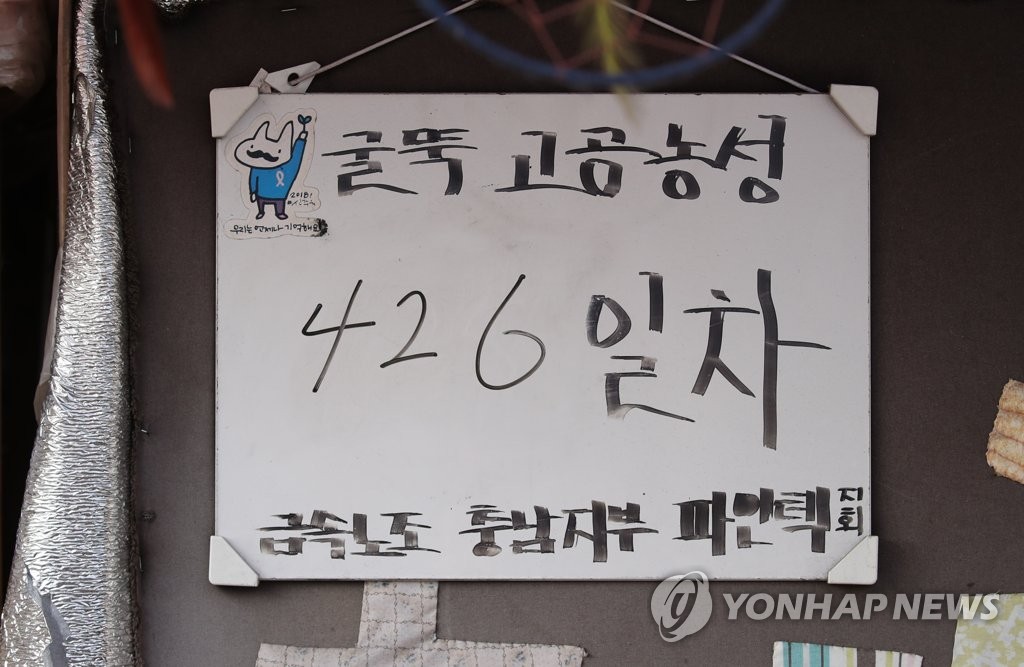 굴뚝 고공농성
2018!
우리는 언제나 기억해요
426일차
금속노조 충남지부 파인텍 지회
YONHAP NEWS